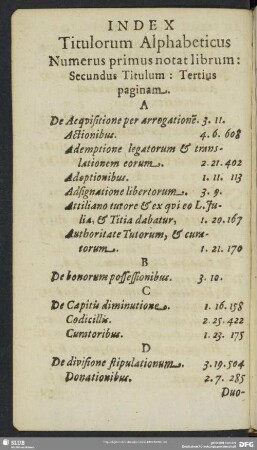 INDEX
Titulorum Alphabeticus
Numerus primus notat librum:
Secundus Titulum: Tertius
paginam.
A
De Acqvisitione per arrogationē. 3. 11.
Actionibus. 4. 6. 608
Ademptione legatorum & trans-
lationem eorum. 2. 21. 402
Adoptionibus. 1. 11. 113
Adsignatione libertorum. 3. 9.
Attiliano tutore & ex qvi eo L. Ju-
lia, & Titia dabatur, 1. 20. 167
Authoritate Tutorum, & cura-
torum. 1. 21. 170
B
De bonorum possessionibus. 3. 10.
C
De Capitis diminutione. 1. 16. 158
Codicillis. 2. 25. 422
Curatoribus. 1. 23. 175
D
De divisione stipulationum. 3. 19. 504
Donationibus. 2. 7. 285
Duo-
SLUB
DFG